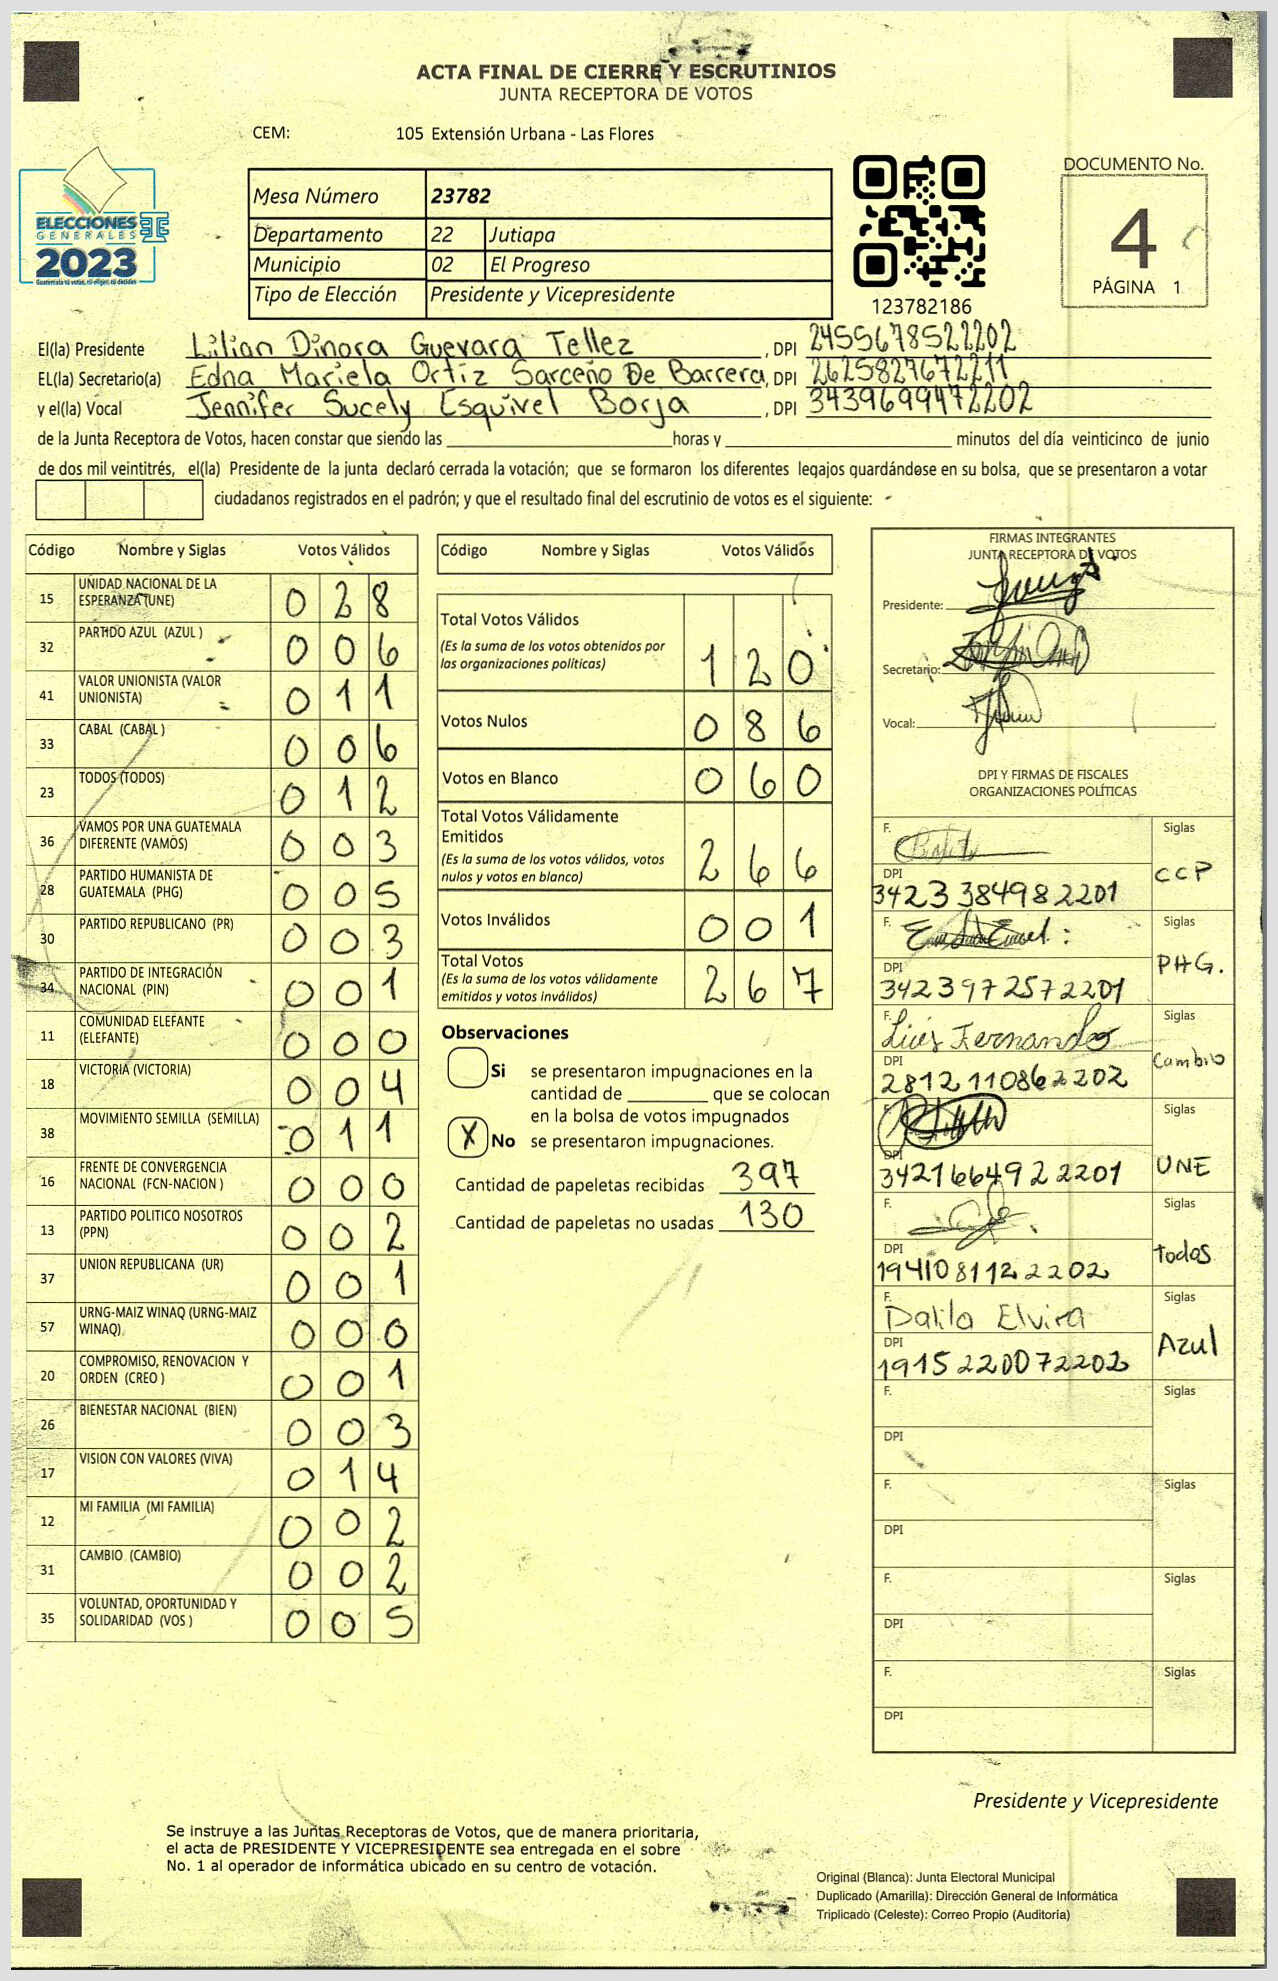 ACTA FINAL DE CIERRE Y ESCRUTINIOS
JUNTA RECEPTORA DE VOTOS
CEM: 105 Extensión Urbana - Las Flores
ELECCIONES
GENERALES
2023
Mesa Número 23782
Departamento 22 Jutiapa
Municipio 02 El Progreso
Tipo de Elección Presidente y Vicepresidente
123782186
DOCUMENTO No.
4
PÁGINA 1
El(la) Presidente Lilian Dinora Guevara Tellez, DPI 2455678522202
EL(la) Secretario(a) Edna Mariela Ortiz Sarceño De Barrera, DPI 2625827672211
y el(la) Vocal Jennifer Sucely Esquivel Borja, DPI 3439699472202
de la Junta Receptora de Votos, hacen constar que siendo las horas y minutos del día veinticinco de junio
de dos mil veintitrés, el(la) Presidente de la junta declaró cerrada la votación; que se formaron los diferentes legajos guardándose en su bolsa, que se presentaron a votar
ciudadanos registrados en el padrón; y que el resultado final del escrutinio de votos es el siguiente:
Código Nombre y Siglas Votos Válidos
15 UNIDAD NACIONAL DE LA ESPERANZA (UNE) 028
32 PARTIDO AZUL (AZUL ) 006
41 VALOR UNIONISTA (VALOR UNIONISTA) 011
33 CABAL (CABAL ) 006
23 TODOS (TODOS) 012
36 VAMOS POR UNA GUATEMALA DIFERENTE (VAMOS) 003
28 PARTIDO HUMANISTA DE GUATEMALA (PHG) 005
30 PARTIDO REPUBLICANO (PR) 003
34 PARTIDO DE INTEGRACIÓN NACIONAL (PIN) 001
11 COMUNIDAD ELEFANTE (ELEFANTE) 000
18 VICTORIA (VICTORIA) 004
38 MOVIMIENTO SEMILLA (SEMILLA) 011
16 FRENTE DE CONVERGENCIA NACIONAL (FCN-NACION ) 000
13 PARTIDO POLITICO NOSOTROS (PPN) 002
37 UNION REPUBLICANA (UR) 001
57 URNG-MAIZ WINAQ (URNG-MAIZ WINAQ) 000
20 COMPROMISO, RENOVACION Y ORDEN (CREO ) 001
26 BIENESTAR NACIONAL (BIEN) 003
17 VISION CON VALORES (VIVA) 014
12 MI FAMILIA (MI FAMILIA) 002
31 CAMBIO (CAMBIO) 002
35 VOLUNTAD, OPORTUNIDAD Y SOLIDARIDAD (VOS ) 005
Código Nombre y Siglas Votos Válidos
Total Votos Válidos 120
(Es la suma de los votos obtenidos por
las organizaciones políticas)
Votos Nulos 086
Votos en Blanco 060
Total Votos Válidamente
Emitidos 266
(Es la suma de los votos válidos, votos
nulos y votos en blanco)
Votos Inválidos 001
Total Votos 267
(Es la suma de los votos válidamente
emitidos y votos inválidos)
Observaciones
Si se presentaron impugnaciones en la
cantidad de que se colocan
en la bolsa de votos impugnados
X No se presentaron impugnaciones.
Cantidad de papeletas recibidas 397
Cantidad de papeletas no usadas 130
FIRMAS INTEGRANTES
JUNTA RECEPTORA DE VOTOS
Presidente:
Secretario:
Vocal:
DPI Y FIRMAS DE FISCALES
ORGANIZACIONES POLÍTICAS
F. Siglas
DPI CCP
3423384982201
F. Siglas
DPI PHG.
3423972572201
F. Luis Fernando Siglas
DPI Cambio
2812110862202
F. Siglas
DPI UNE
3421664922201
F. Siglas
DPI todos
1941081122202
F. Siglas
Dalila Elvira
DPI Azul
1915220072202
F. Siglas
DPI
F. Siglas
DPI
F. Siglas
DPI
F. Siglas
DPI
Presidente y Vicepresidente
Se instruye a las Juntas Receptoras de Votos, que de manera prioritaria,
el acta de PRESIDENTE Y VICEPRESIDENTE sea entregada en el sobre
No. 1 al operador de informática ubicado en su centro de votación.
Original (Blanca): Junta Electoral Municipal
Duplicado (Amarilla): Dirección General de Informática
Triplicado (Celeste): Correo Propio (Auditoria)